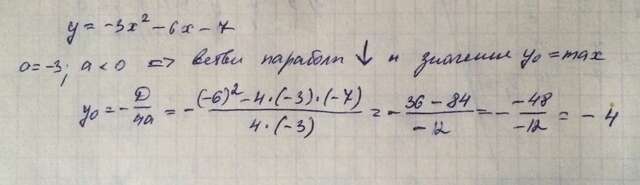 y = -3x² - 6x - 7
a = -3; a < 0 => ветви парабол ↓ и значение y₀ = max
y₀ = -D/4a = -((-6)² - 4·(-3)·(-7))/(4·(-3)) = -(36 - 84)/(-12) = -(-48)/(-12) = -4